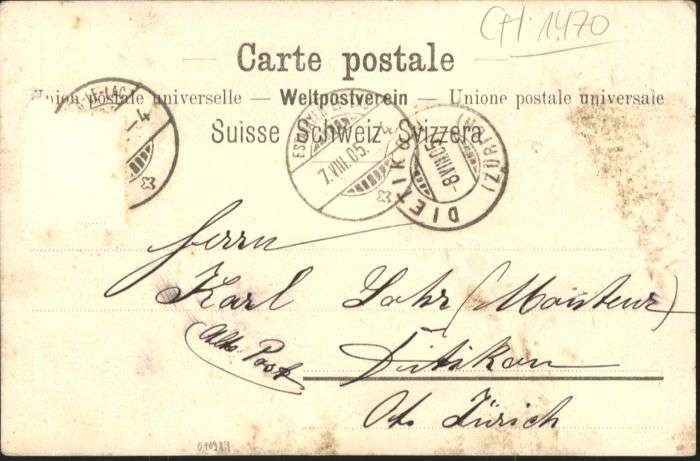 CH 1.470
Carte postale
Union postale universelle — Weltpostverein — Unione postale universale
Suisse Schweiz Svizzera
7.VIII.05.
DIETIKON
(ZÜRICH)
Herrn
Karl Lohr (Monteur)
(Alte Post)
Ditikon
Ct. Zürich